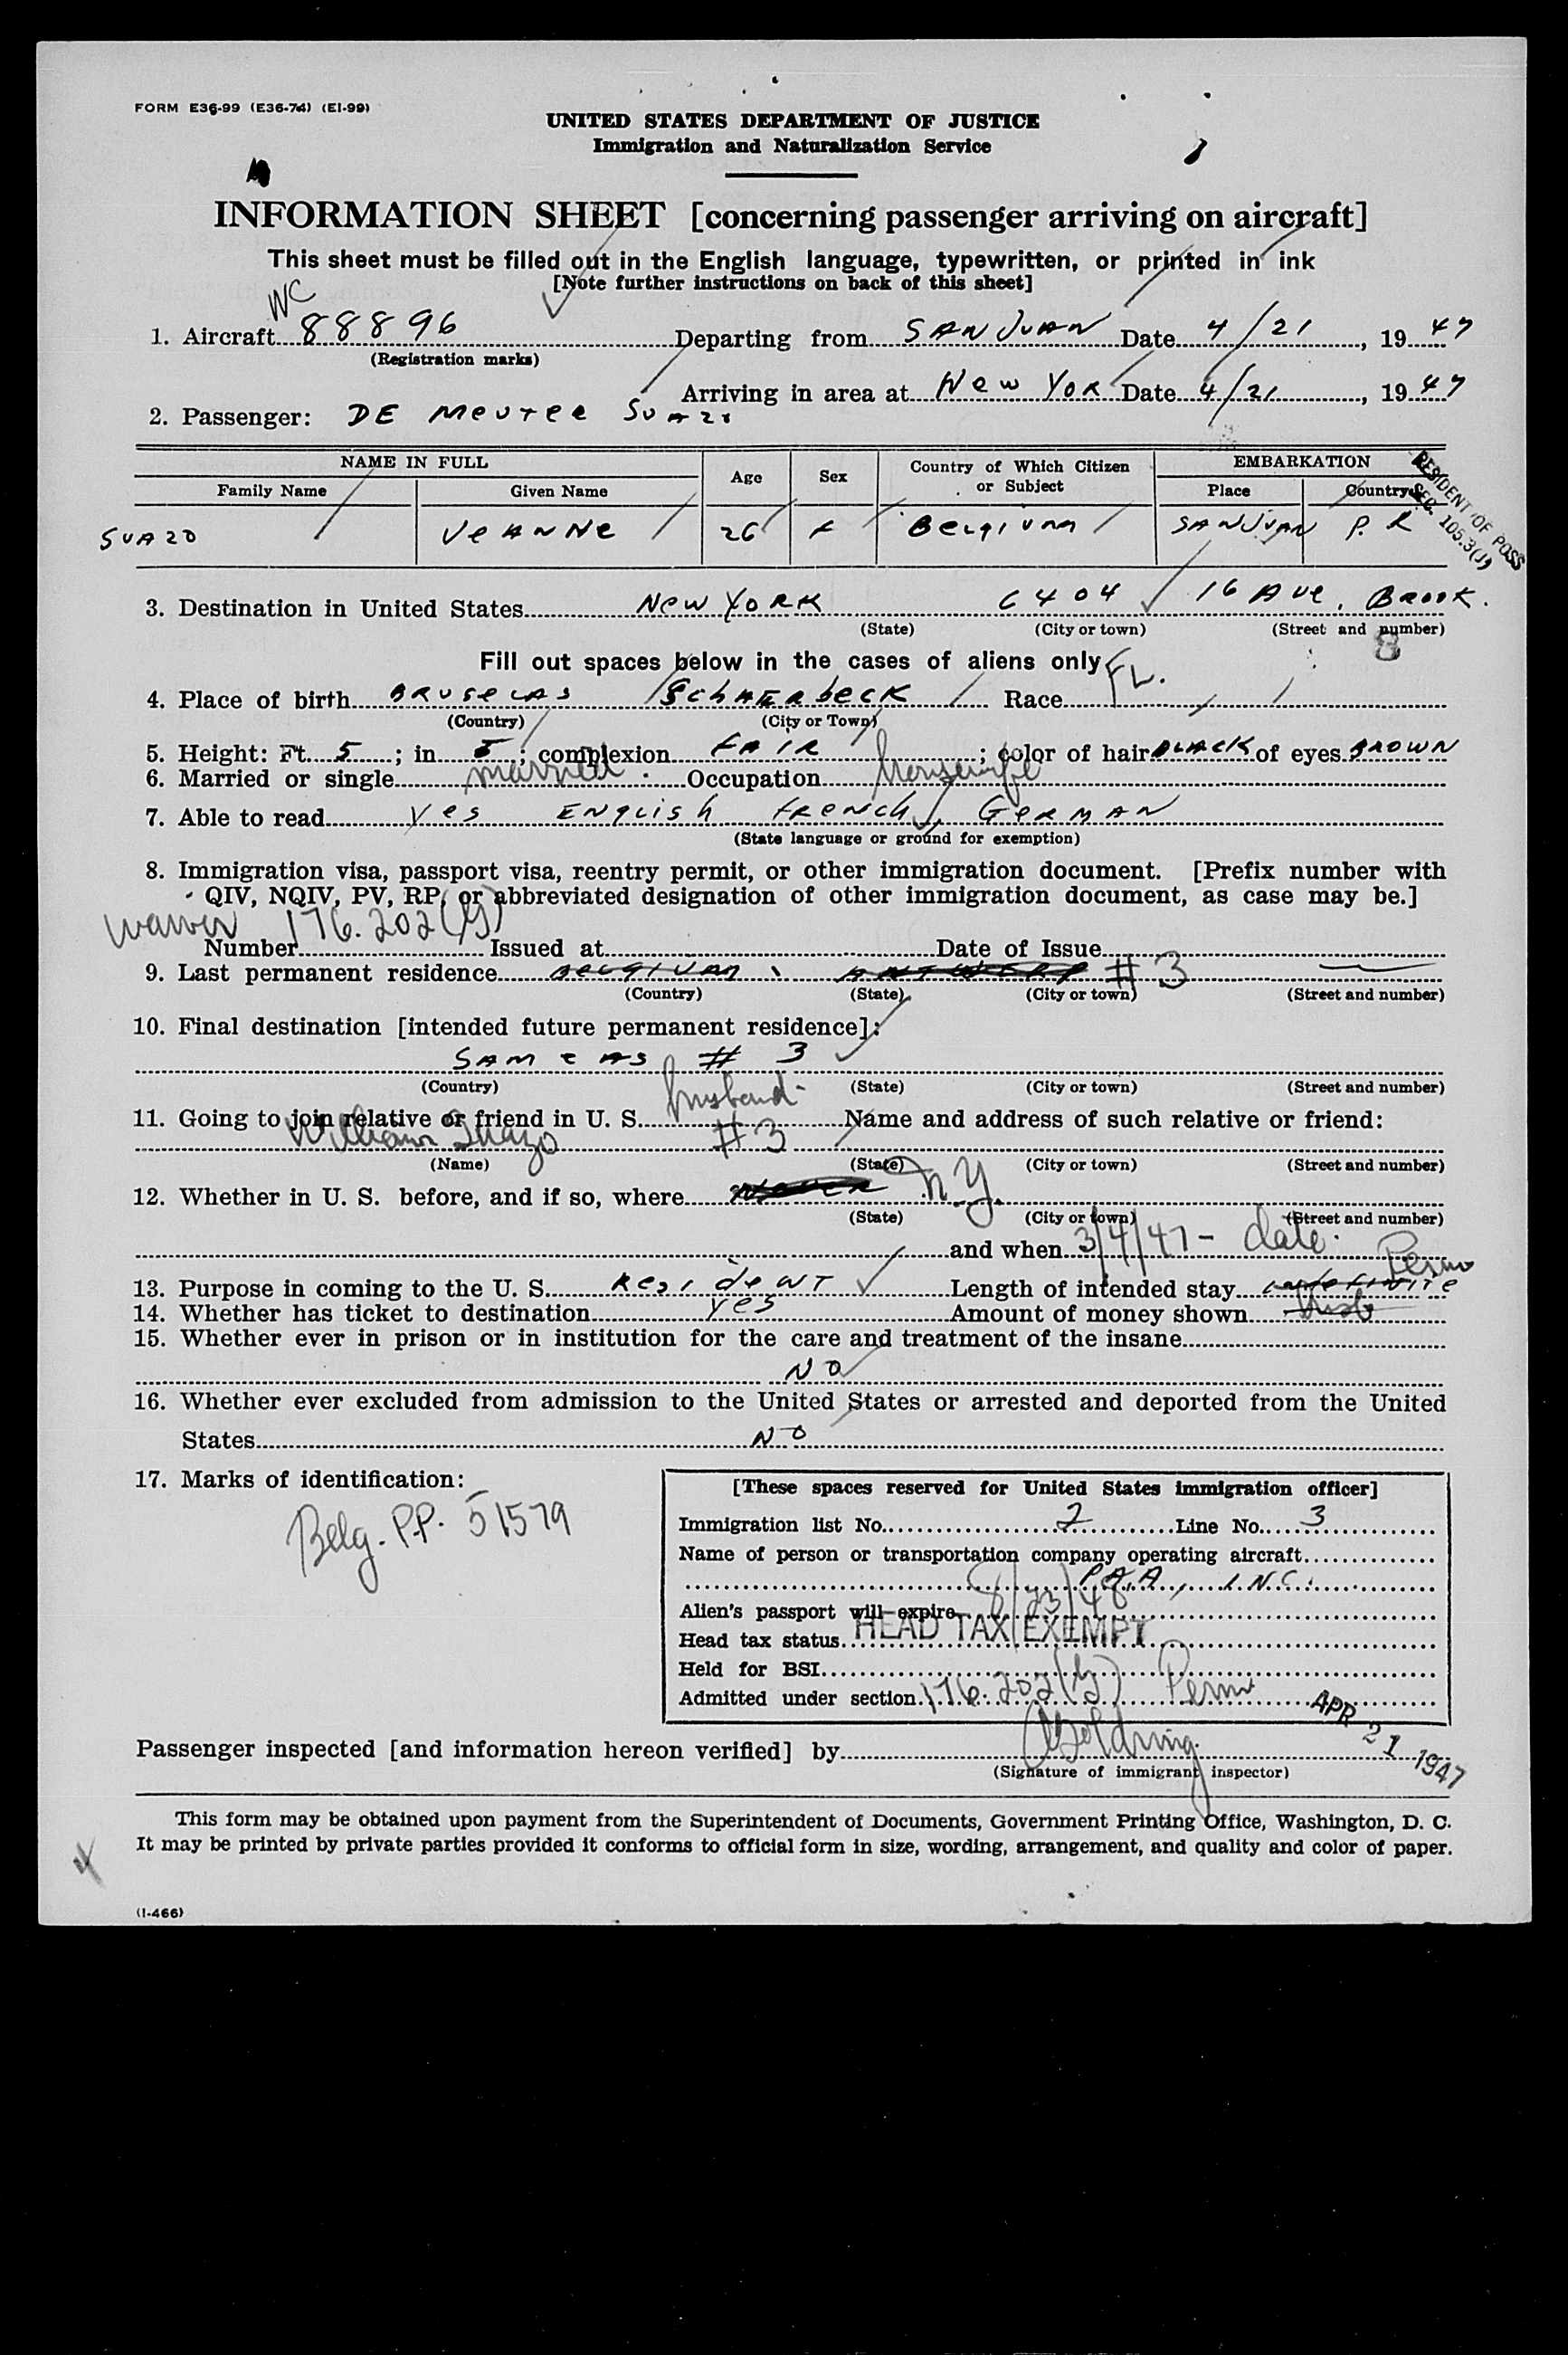 FORM E36-99 (E36-74) (EI-99)
UNITED STATES DEPARTMENT OF JUSTICE
Immigration and Naturalization Service
INFORMATION SHEET [concerning passenger arriving on aircraft]
This sheet must be filled out in the English language, typewritten, or printed in ink
[Note further instructions on back of this sheet]
NC
1. Aircraft 88896 Departing from SAN JUAN Date 4/21, 1947
(Registration marks)
Arriving in area at New York Date 4/21, 1947
2. Passenger: DE
NAME IN FULL Age Sex Country of Which Citizen or Subject EMBARKATION
Family Name Given Name Place Country
SUAZO JEANNE 26 F BELGIUM SAN JUAN P.R.
RESIDENT OF POSS
SEC. 105.3(J)
3. Destination in United States New York 6404 16 Ave, Brook.
(State) (City or town) (Street and number)
8
Fill out spaces below in the cases of aliens only
4. Place of birth BRUSELAS SCHAERBECK Race FL.
(Country) (City or Town)
5. Height: Ft. 5; in. 5; complexion FAIR; color of hair BLACK of eyes BROWN
6. Married or single married Occupation housewife
7. Able to read Yes ENGLISH FRENCH, GERMAN
(State language or ground for exemption)
8. Immigration visa, passport visa, reentry permit, or other immigration document. [Prefix number with
QIV, NQIV, PV, RP, or abbreviated designation of other immigration document, as case may be.]
waiver 176.202(g)
Number Issued at Date of Issue
9. Last permanent residence BELGIUM, ANTWERP #3
(Country) (State) (City or town) (Street and number)
10. Final destination [intended future permanent residece]:
SAME AS # 3
(Country) (State) (City or town) (Street and number)
11. Going to join relative or friend in U. S. husband Name and address of such relative or friend:
William Suazo #3
(Name) (State) (City or town) (Street and number)
12. Whether in U. S. before, and if so, where NEVER N.Y.
(State) (City or town) (Street and number)
and when 3/4/47 - date.
Perm
13. Purpose in coming to the U. S. Resident Length of intended stay indefinite
14. Whether has ticket to destination yes Amount of money shown
15. Whether ever in prison or in institution for the care and treatment of the insane
NO
16. Whether ever excluded from admission to the United States or arrested and deported from the United
States NO
17. Marks of identification:
Belg. P.P. 51579
[These spaces reserved for United States immigration officer]
Immigration list No. 2 Line No. 3
Name of person or transportation company operating aircraft
P.A.A., INC.
Alien's passport will expire 8/23/48
Head tax status HEAD TAX EXEMPT
Held for BSI
Admitted under section 176.202(g) Perm
APR 21 1947
Passenger inspected [and information hereon verified] by
(Signature of immigrant inspector)
This form may be obtained upon payment from the Superintendent of Documents, Government Printing Office, Washington, D. C.
It may be printed by private parties provided it conforms to official form in size, wording, arrangement, and quality and color of paper.
(I-466)